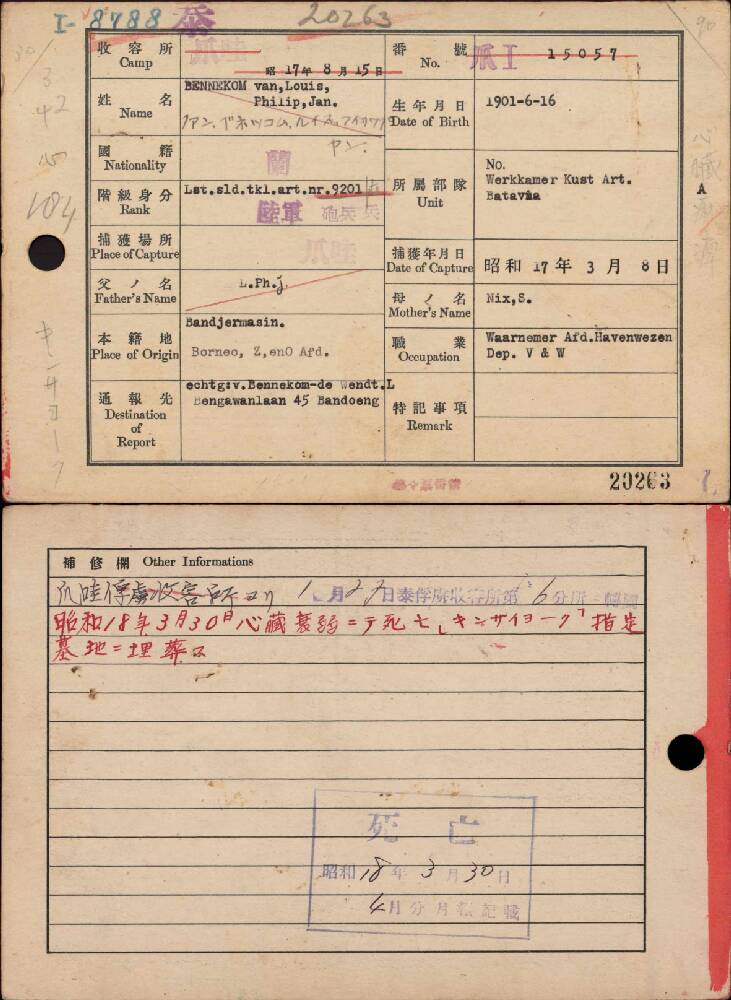 I-8788 泰 20263
収容所 Camp 昭17年8月15日
番號 No. 爪I 15057
姓名 Name BENNEKOM van,Louis,
Philip,Jan.
ヤン.
生年月日 Date of Birth 1901-6-16
國籍 Nationality 蘭
階級身分 Rank Lst.sld.tkl.art.nr.9201
陸軍 砲兵
所属部隊 Unit No.
Werkkamer Kust Art.
Batavia
A
104
捕獲場所 Place of Capture 爪哇
捕獲年月日 Date of Capture 昭和 17年 3月 8日
父ノ名 Father's Name L.Ph.j.
母ノ名 Mother's Name Nix,S.
本籍地 Place of Origin Bandjermasin.
Borneo, Z,enO Afd.
職業 Occupation Waarnemer Afd.Havenwezen
Dep. V & W
通報先 Destination of Report echtg:v.Bennekom-de Wendt.L
Bengawanlaan 45 Bandoeng
特記事項 Remark
20263
補修欄 Other Informations
爪哇俘虜収容所ヨリ 1月23日泰俘虜収容所第 6分所ニ轉属
昭和18年3月30日心臓衰弱ニテ死亡「キンサイヨーク」指定
墓地ニ埋葬ス
死亡
昭和18年3月30日
4月分月報記載